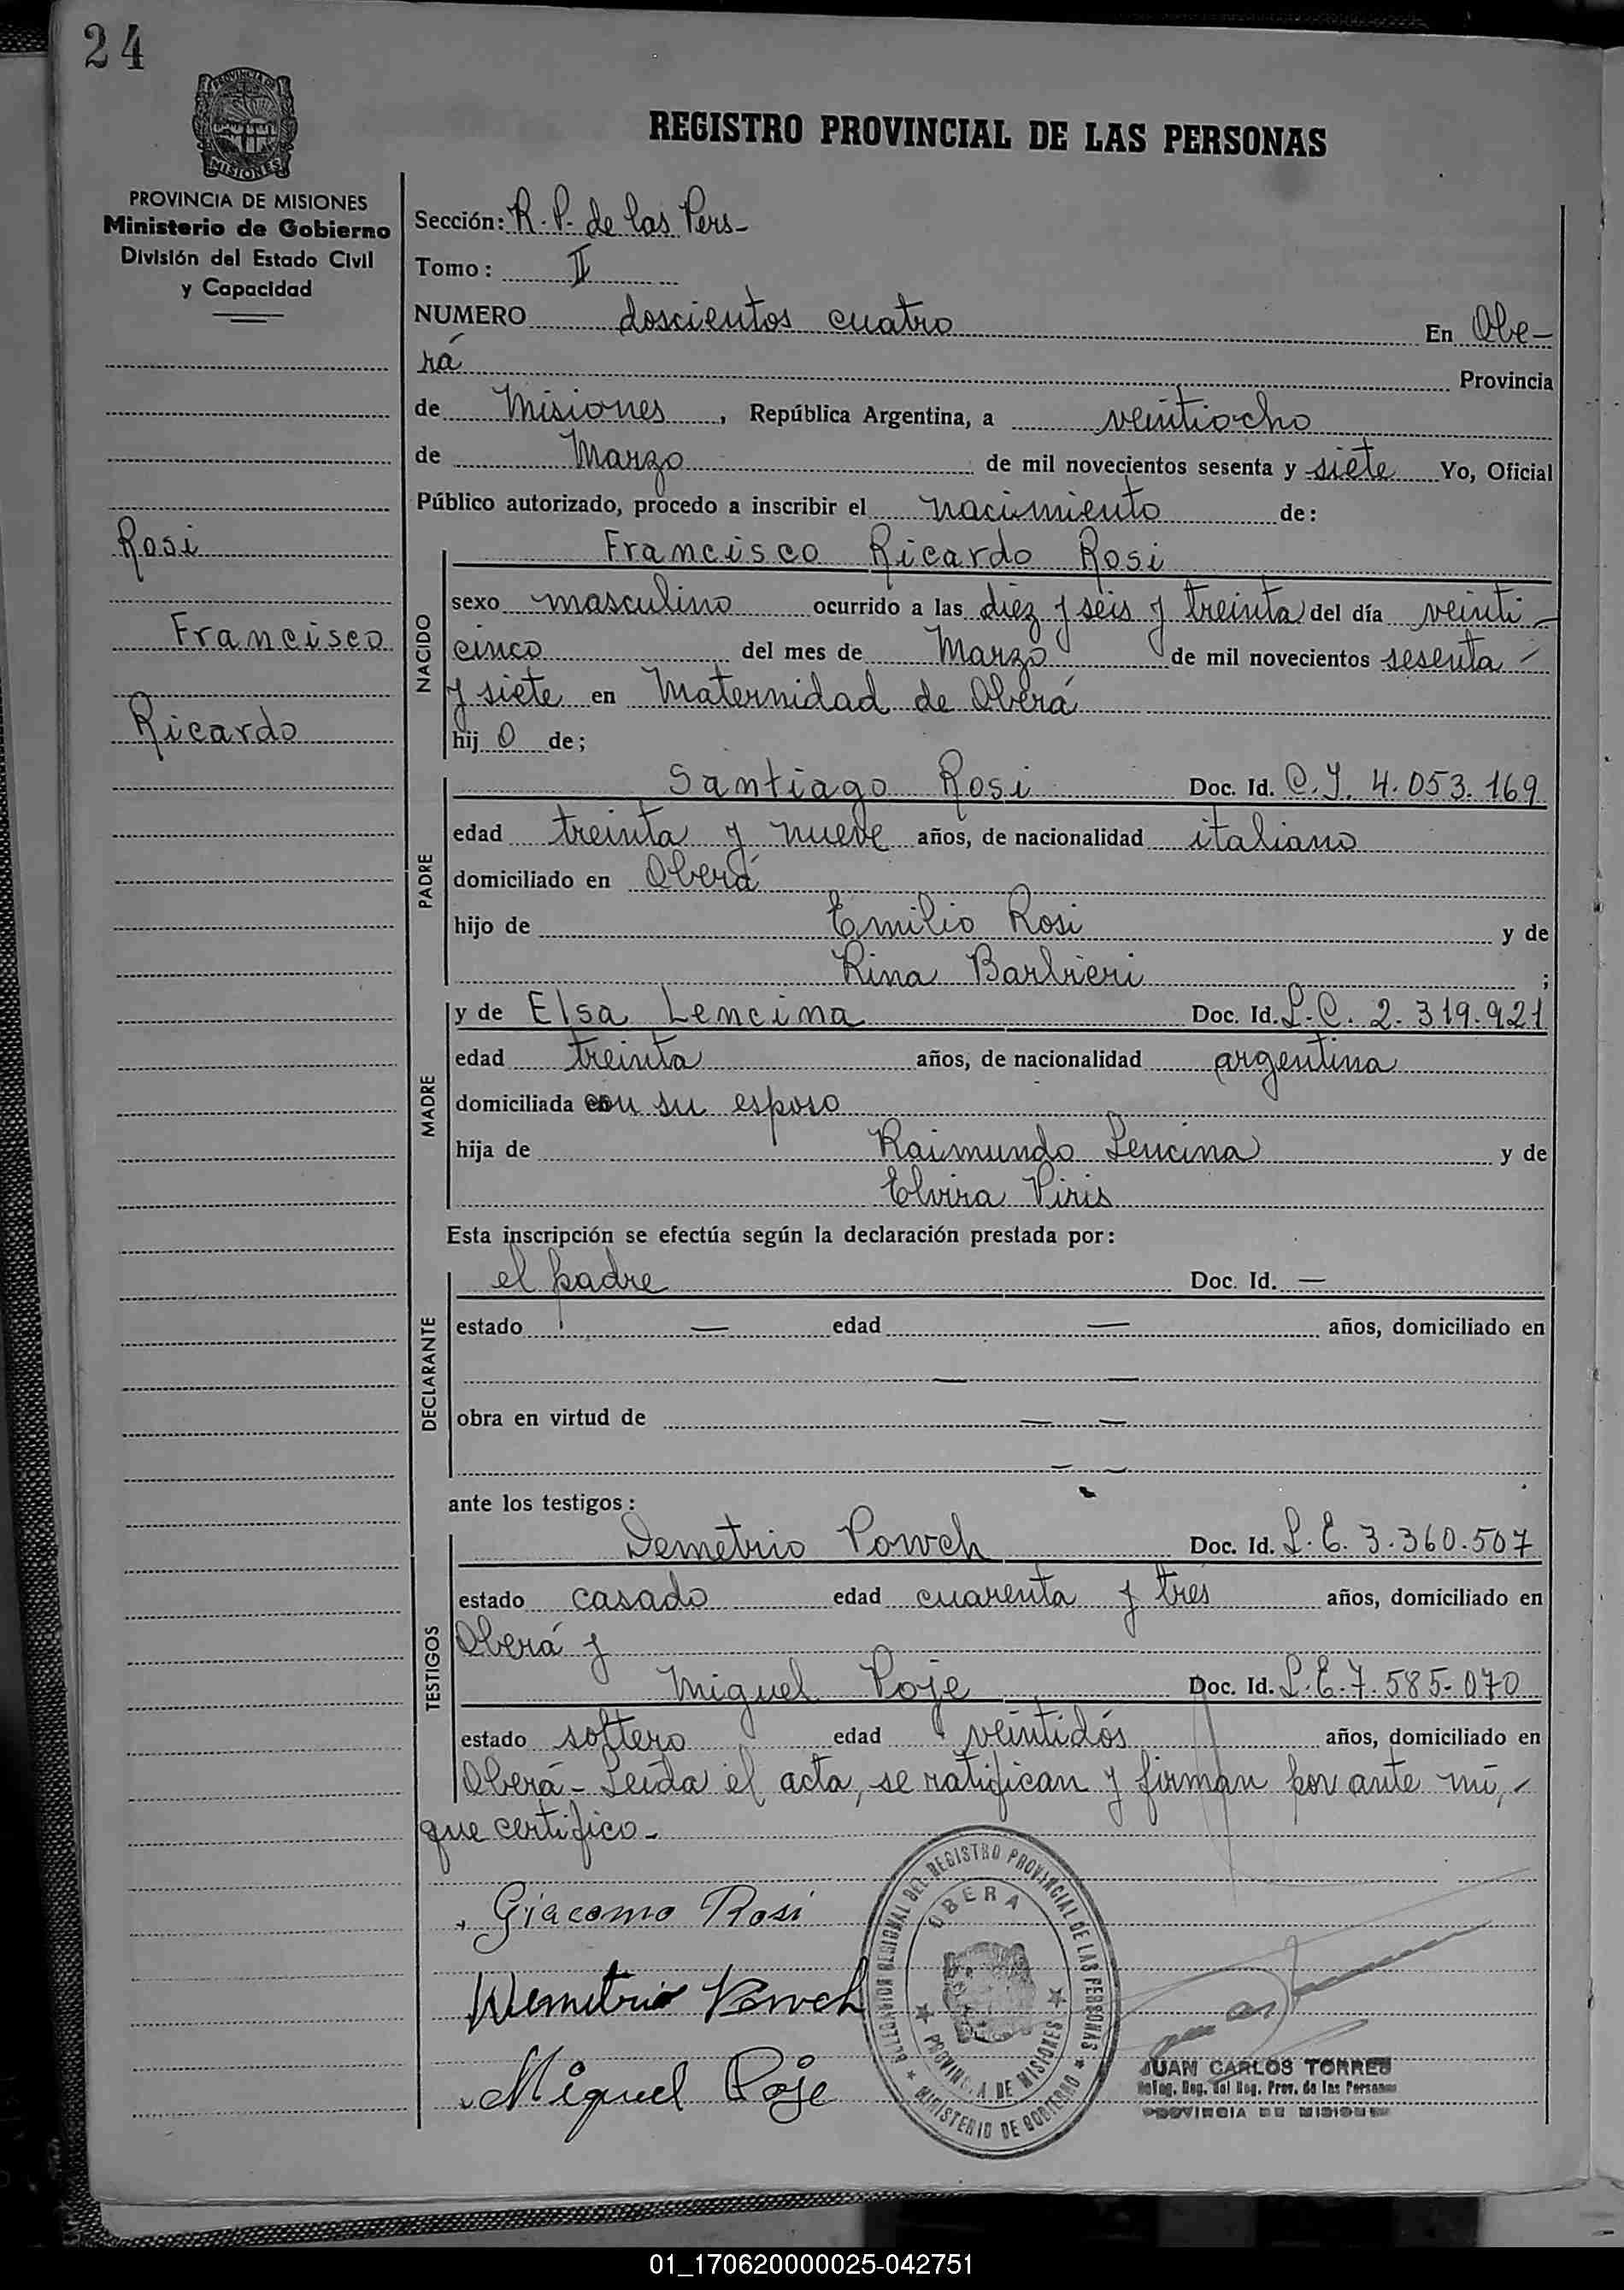 24
PROVINCIA DE
MISIONES
REGISTRO PROVINCIAL DE LAS PERSONAS
PROVINCIA DE MISIONES
Ministerio de Gobierno
División del Estado Civil
y Capacidad
Rosi
Francisco
Ricardo
Sección: R. P. de las Pers-
Tomo: II
NUMERO doscientos cuatro En Obe-
rá Provincia
de Misiones, República Argentina, a veintiocho
de Marzo de mil novecientos sesenta y siete Yo, Oficial
Público autorizado, procedo a inscribir el nacimiento de:
NACIDO
Francisco Ricardo Rosi
sexo masculino ocurrido a las diez y seis y treinta del día veinti-
cinco del mes de Marzo de mil novecientos sesenta -
y siete en Maternidad de Oberá
hij o de;
PADRE
Santiago Rosi Doc. Id. C.I. 4.053.169
edad treinta y nueve años, de nacionalidad italiano
domiciliado en Oberá
hijo de Emilio Rosi y de
Rina Barbieri ;
MADRE
y de Elsa Lencina Doc. Id. L.C. 2.319.921
edad treinta años, de nacionalidad argentina
domiciliada con su esposo
hija de Raimundo Lencina y de
Elvira Piris
Esta inscripción se efectúa según la declaración prestada por:
DECLARANTE
el padre Doc. Id. —
estado — edad — años, domiciliado en
— —
obra en virtud de — —
— —
ante los testigos:
TESTIGOS
Demetrio Powch Doc. Id. L.E. 3.360.507
estado casado edad cuarenta y tres años, domiciliado en
Oberá y
Miguel Poje Doc. Id. L.E. 7.585.070
estado soltero edad veintidós años, domiciliado en
Oberá - Leída el acta, se ratifican y firman por ante mí, -
que certifico -
Giacomo Rosi
Demetrio Powch
Miguel Poje
DELEGACION REGIONAL DEL REGISTRO PROVINCIAL DE LAS PERSONAS
OBERA
PROVINCIA DE MISIONES
MINISTERIO DE GOBIERNO
JUAN CARLOS TORRES
Deleg. Reg. del Reg. Prov. de las Personas
PROVINCIA DE MISIONES
01_170620000025-042751